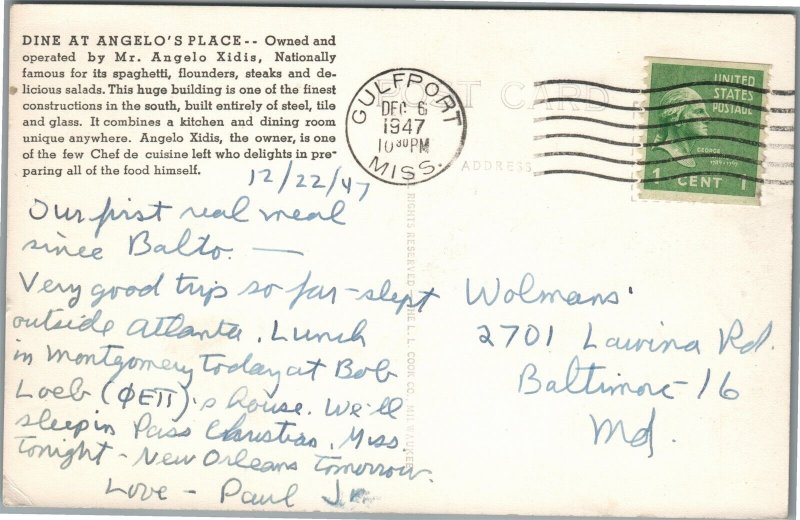 DINE AT ANGELO'S PLACE-- Owned and
operated by Mr. Angelo Xidis, Nationally
famous for its spaghetti, flounders, steaks and de-
licious salads. This huge building is one of the finest
constructions in the south, built entirely of steel, tile
and glass. It combines a kitchen and dining room
unique anywhere. Angelo Xidis, the owner, is one
of the few Chef de cuisine left who delights in pre-
paring all of the food himself.
POST CARD
ADDRESS
GULFPORT
DEC 6
1947
10 30 PM
MISS.
UNITED
STATES
POSTAGE
GEORGE
1 CENT 1
12/22/47
Our first real meal
since Balto. —
Very good trip so far - slept
outside Atlanta. Lunch
in Montgomery today at Bob
Loeb (ΦΕΠ)'s house. We'll
sleep in Pass Christian, Miss.
tonight - New Orleans tomorrow.
Love - Paul Jr.
RIGHTS RESERVED - THE L. L. COOK CO. MILWAUKEE
Wolmans'
2701 Lawina Rd.
Baltimore - 16
Md.